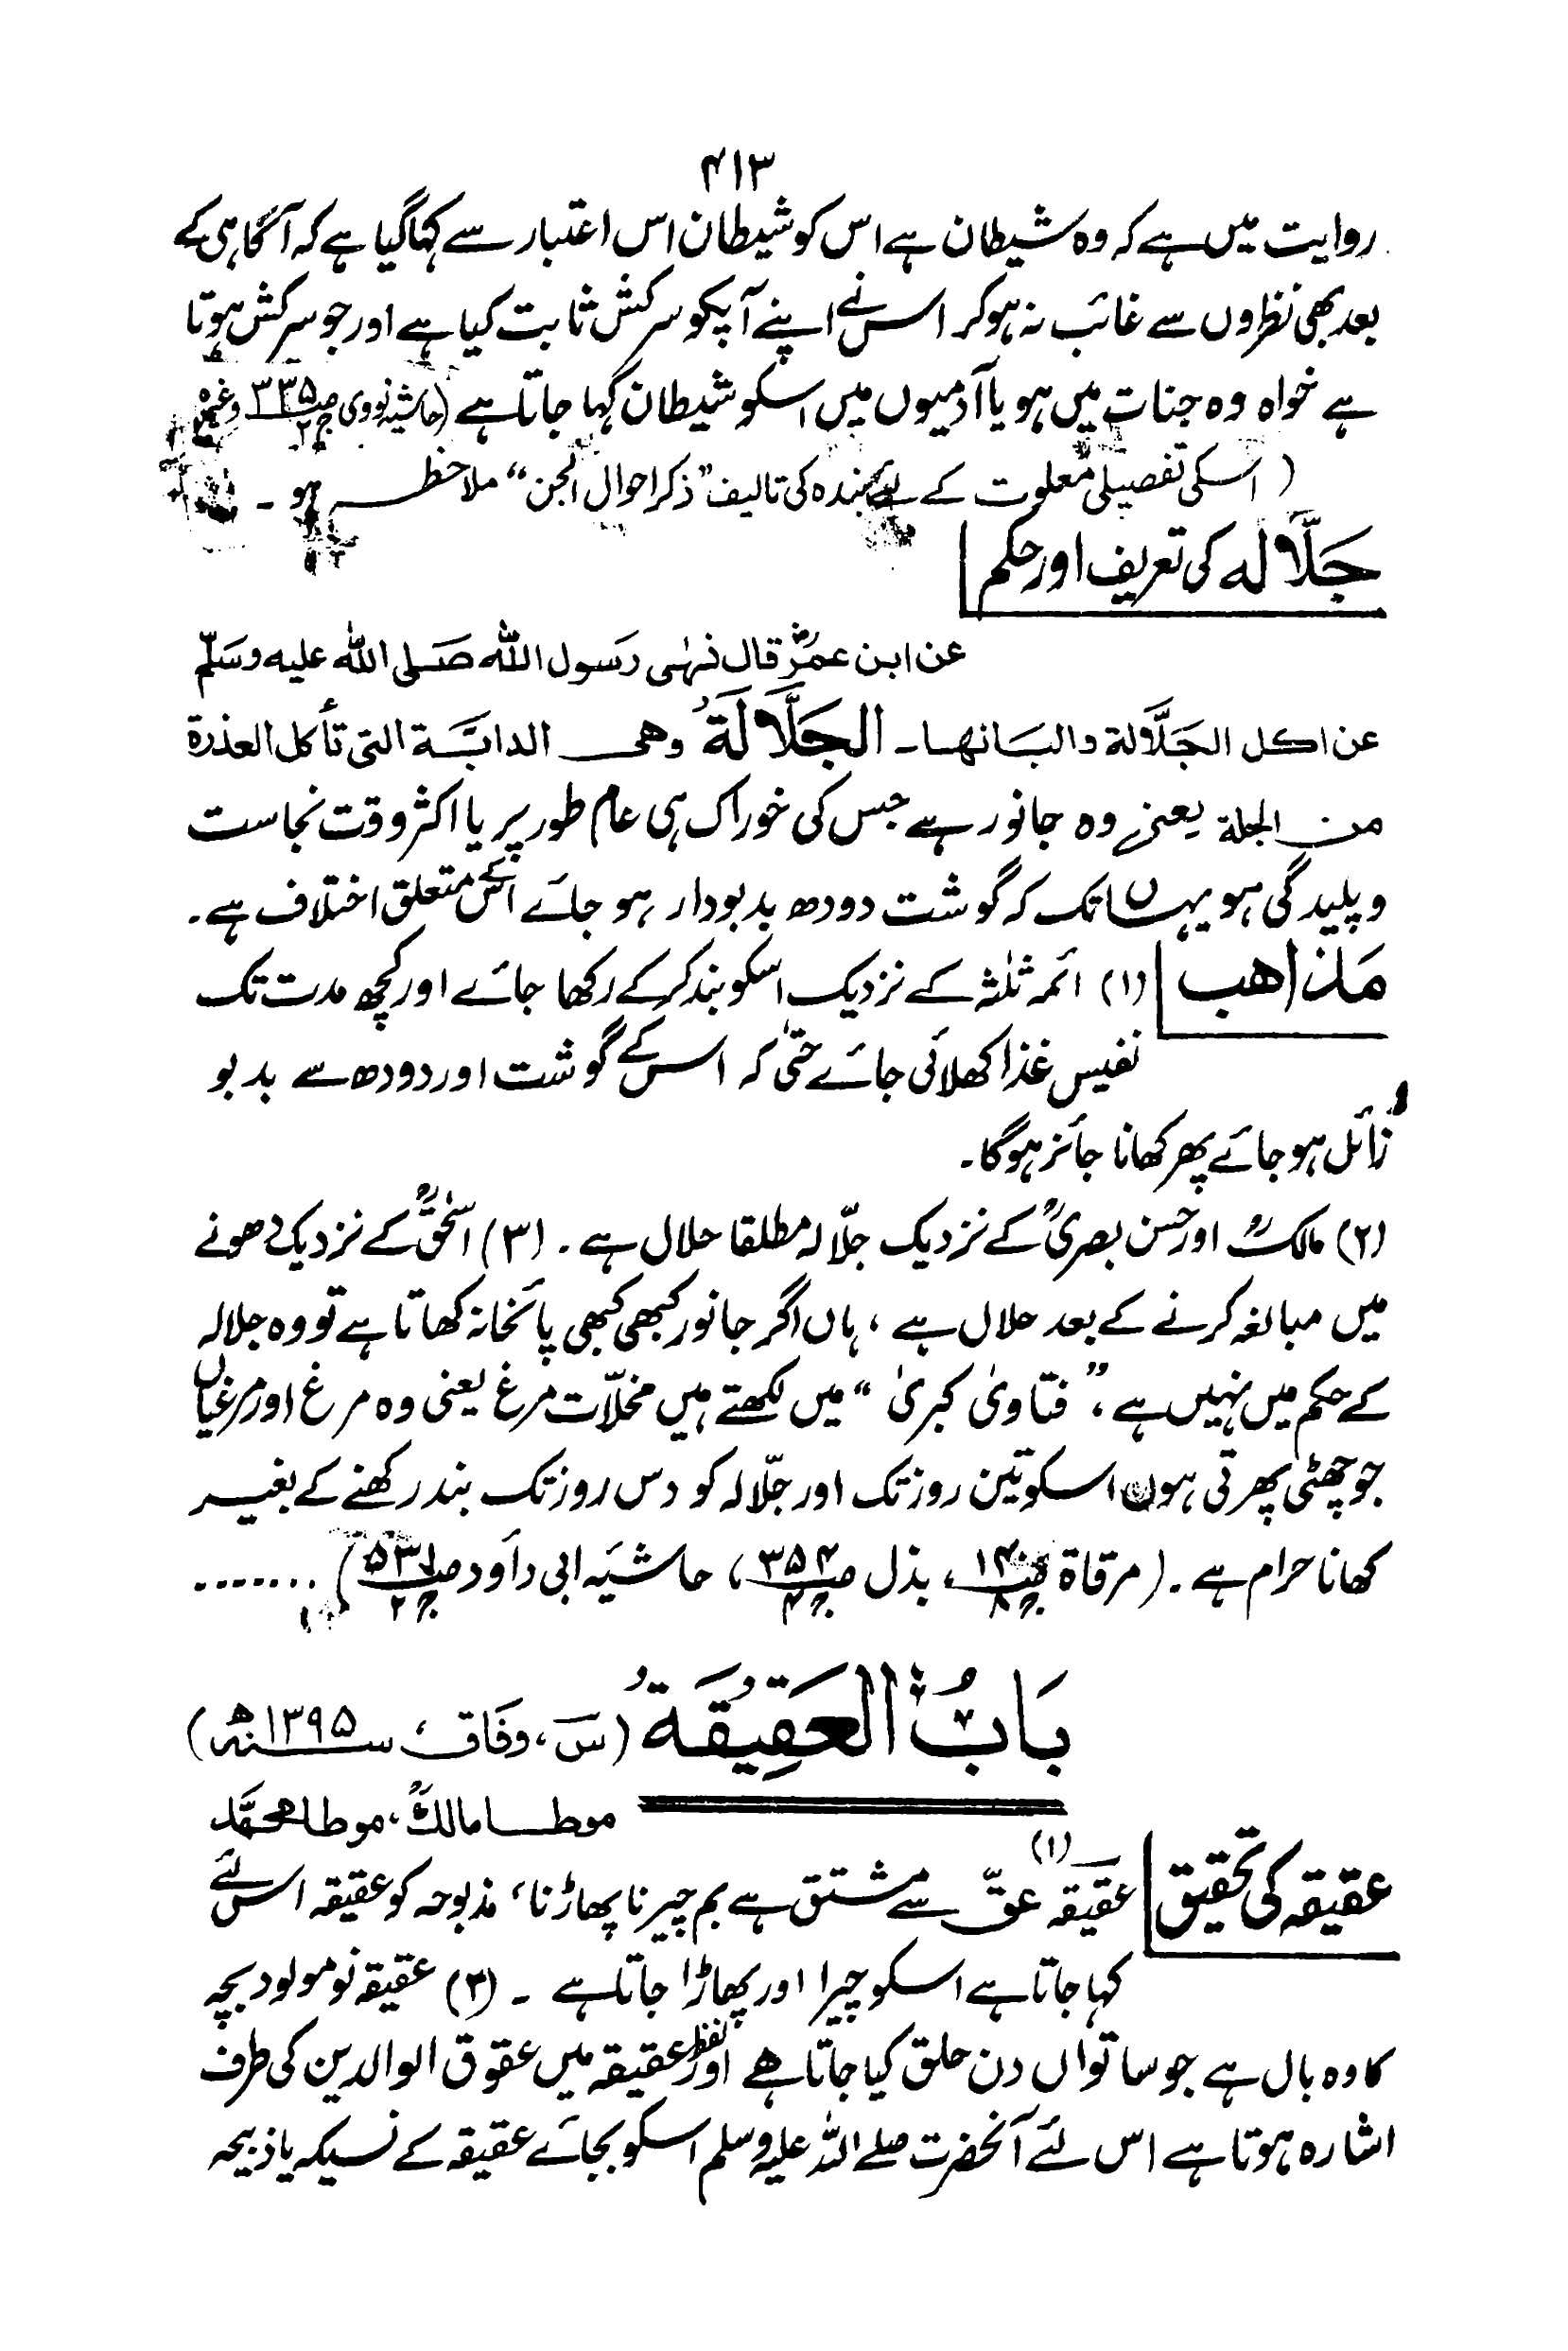 ۴۱۳
روایت میں ہے کہ وہ شیطان ہے اس کو شیطان اس اعتبار سے کہا گیا ہے کہ آگاہی کے
بعد بھی نظروں سے غائب نہ ہوکر اس نے اپنے آپکو سرکش ثابت کیا ہے اور جو سرکش ہوتا
ہے خواہ وہ جنات میں ہو یا آدمیوں میں اسکو شیطان کہا جاتا ہے (حاشیہ نووی ص۳۳۵ ج۲ وغیرہ
(اسکی تفصیلی معلوت کے لئے بندہ کی تالیف "ذکر احوال الجن" ملاحظہ ہو ۔
جَلَّالہ کی تعریف اور حکم
عن ابن عمرؓ قال نہٰی رَسول اللّٰه صَلی اللّٰه علیه وسَلّم
عن اکل الجَلَّالة والبَانھا ۔ الجَلَّالَةُ وھی الدابَّة التی تأکل العذرة
من الجلة یعنی وہ جانور ہے جس کی خوراک ہی عام طور پر یا اکثر وقت نجاست
و پلیدگی ہو یہاں تک کہ گوشت دودھ بدبودار ہو جائے اسکے متعلق اختلاف ہے ۔
مَذاھب (۱) ائمہ ثلٰثہ کے نزدیک اسکو بند کرکے رکھا جائے اور کچھ مدت تک
نفیس غذا کھلائی جائے حتیٰ کہ اس کے گوشت اور دودھ سے بدبو
زائل ہو جائے پھر کھانا جائز ہوگا ۔
(۲) مالکؒ اور حسن بصریؒ کے نزدیک جلّالہ مطلقا حلال ہے ۔ (۳) اسحٰقؒ کے نزدیک دھونے
میں مبالغہ کرنے کے بعد حلال ہے ، ہاں اگر جانور کبھی کبھی پائخانہ کھاتا ہے تو وہ جلالہ
کے حکم میں نہیں ہے ، "فتاویٰ کبریٰ" میں لکھتے ہیں مخلّات مرغ یعنی وہ مرغ اور مرغیاں
جو چھٹی پھرتی ہوں اسکو تین روز تک اور جلّالہ کو دس روز تک بند رکھنے کے بغیر
کھانا حرام ہے ۔ (مرقاة ، بذل ص۳۵۴ ج۴ ، حاشیہ ابی داؤد ص۵۳۱ ج۲) .......
بَابُ العَقِیْقَةِ (سٓ ، وفاق ، سنہ ۱۳۹۵ھ)
موطا مالکؒ ، موطا محمّد
عقیقہ کی تحقیق (۱) عقیقہ عقّ سے مشتق ہے بم چیرنا پھاڑنا ، مذبوحہ کو عقیقہ اس لئے
کہا جاتا ہے اسکو چیرا اور پھاڑا جاتا ہے ۔ (۲) عقیقہ نو مولود بچہ
کا وہ بال ہے جو ساتواں دن حلق کیا جاتا ہے اور لفظ عقیقہ میں عقوق الوالدین کی طرف
اشارہ ہوتا ہے اس لئے آنحضرت صلے اللہ علیہ وسلم اسکو بجائے عقیقہ کے نسیکہ یا ذبیحہ